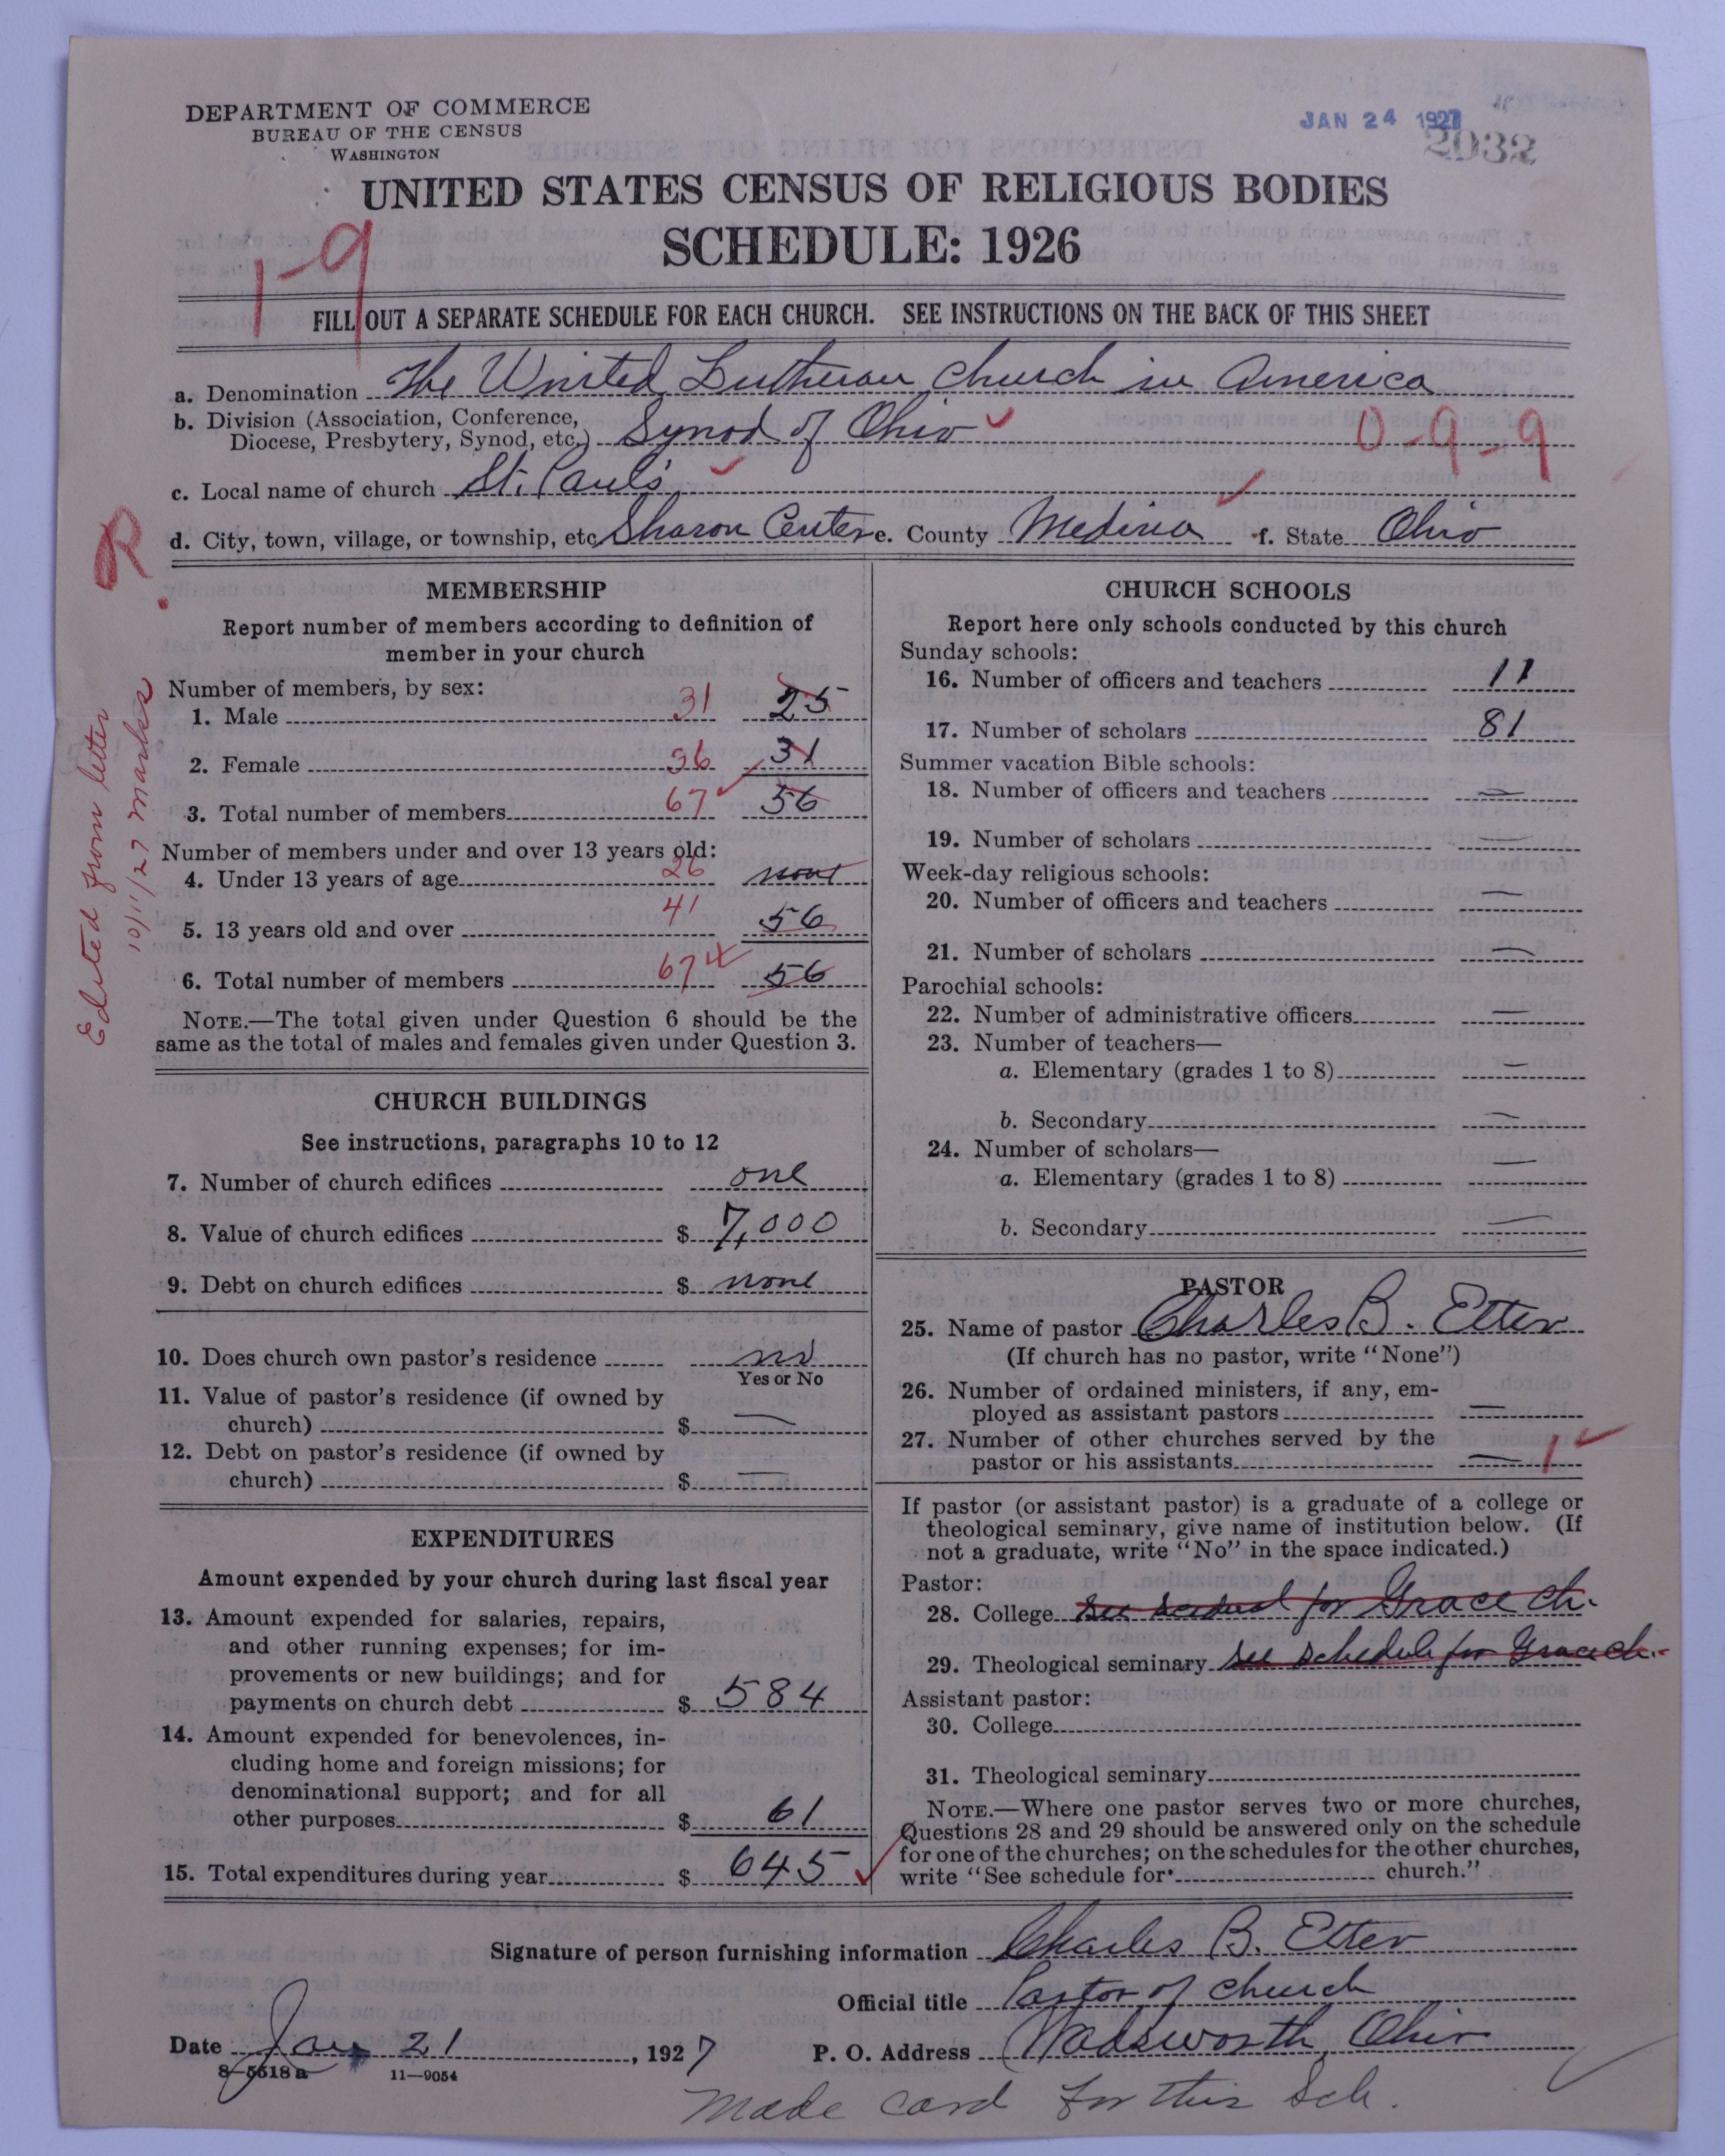 DEPARTMENT OF COMMERCE
BUREAU OF THE CENSUS
WASHINGTON
JAN 24 1927
2032
UNITED STATES CENSUS OF RELIGIOUS BODIES
SCHEDULE: 1926
1-9
FILL OUT A SEPARATE SCHEDULE FOR EACH CHURCH. SEE INSTRUCTIONS ON THE BACK OF THIS SHEET
a. Denomination The United Lutheran Church in America
b. Division (Association, Conference,
Diocese, Presbytery, Synod, etc.) Synod of Ohio
0-9-9
c. Local name of church St. Paul's
d. City, town, village, or township, etc Sharon Center e. County Medina f. State Ohio
R.
Edited from letter
10/11/27 Marks
MEMBERSHIP
Report number of members according to definition of
member in your church
Number of members, by sex:
1. Male 31 25
2. Female 36 31
3. Total number of members 67 56
Number of members under and over 13 years old:
4. Under 13 years of age 26 none
5. 13 years old and over 41 56
6. Total number of members 67 56
NOTE.—The total given under Question 6 should be the
same as the total of males and females given under Question 3.
CHURCH BUILDINGS
See instructions, paragraphs 10 to 12
7. Number of church edifices one
8. Value of church edifices $ 7,000
9. Debt on church edifices $ none
10. Does church own pastor's residence no
Yes or No
11. Value of pastor's residence (if owned by
church) $ —
12. Debt on pastor's residence (if owned by
church) $ —
EXPENDITURES
Amount expended by your church during last fiscal year
13. Amount expended for salaries, repairs,
and other running expenses; for im-
provements or new buildings; and for
payments on church debt $ 584
14. Amount expended for benevolences, in-
cluding home and foreign missions; for
denominational support; and for all
other purposes $ 61
15. Total expenditures during year $ 645
CHURCH SCHOOLS
Report here only schools conducted by this church
Sunday schools:
16. Number of officers and teachers 11
17. Number of scholars 81
Summer vacation Bible schools:
18. Number of officers and teachers —
19. Number of scholars —
Week-day religious schools:
20. Number of officers and teachers —
21. Number of scholars —
Parochial schools:
22. Number of administrative officers —
23. Number of teachers—
a. Elementary (grades 1 to 8) —
b. Secondary —
24. Number of scholars—
a. Elementary (grades 1 to 8) —
b. Secondary —
PASTOR
25. Name of pastor Charles B. Etter
(If church has no pastor, write "None")
26. Number of ordained ministers, if any, em-
ployed as assistant pastors —
27. Number of other churches served by the
pastor or his assistants — 1
If pastor (or assistant pastor) is a graduate of a college or
theological seminary, give name of institution below. (If
not a graduate, write "No" in the space indicated.)
Pastor:
28. College See for Grace Ch.
29. Theological seminary See schedule for Grace ch.
Assistant pastor:
30. College
31. Theological seminary
NOTE.—Where one pastor serves two or more churches,
Questions 28 and 29 should be answered only on the schedule
for one of the churches; on the schedules for the other churches,
write "See schedule for church."
Signature of person furnishing information Charles B. Etter
Official title Pastor of church
Date Jan. 21, 1927 P. O. Address Wadsworth, Ohio
8-5518a 11-9054
Made card for this Sch.